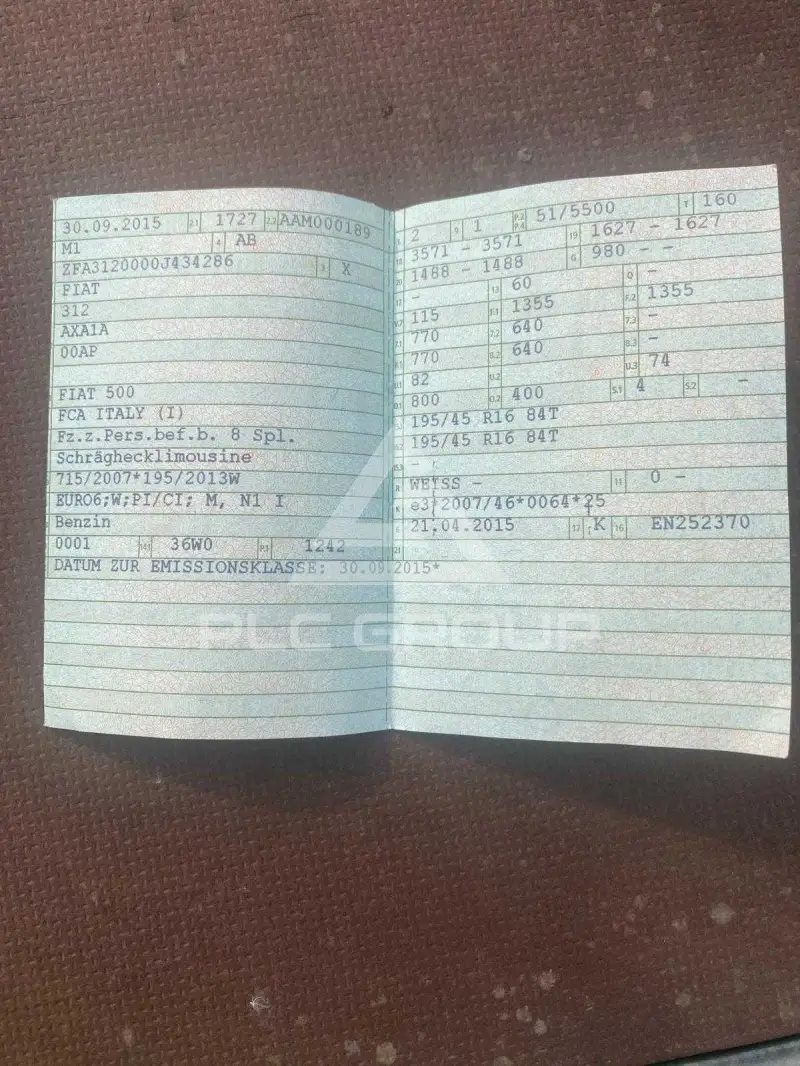 30.09.2015 2.1 1727 2.2 AAM000189
M1 4 AB
ZFA3120000J434286 3 X
FIAT
312
AXA1A
00AP
FIAT 500
FCA ITALY (I)
Fz.z.Pers.bef.b. 8 Spl.
Schräghecklimousine
715/2007*195/2013W
EURO6;W;PI/CI; M, N1 I
Benzin
0001 14.1 36W0 P.1 1242
DATUM ZUR EMISSIONSKLASSE: 30.09.2015*
L 2 9 1 P.2 P.4 51/5500 T 160
18 3571 - 3571 19 1627 - 1627
20 1488 - 1488 G 980 - -
12 - 13 60 Q -
V.7 115 F.1 1355 F.2 1355
7.1 770 7.2 640 7.3 -
8.1 770 8.2 640 8.3 -
U.1 82 U.2 U.3 74
O.1 800 O.2 400 S.1 4 S.2 -
195/45 R16 84T
195/45 R16 84T
15.3 -
R WEISS - 11 0 -
K e3*2007/46*0064*25
21.04.2015 17 K 16 EN252370
21
PLC GROUP